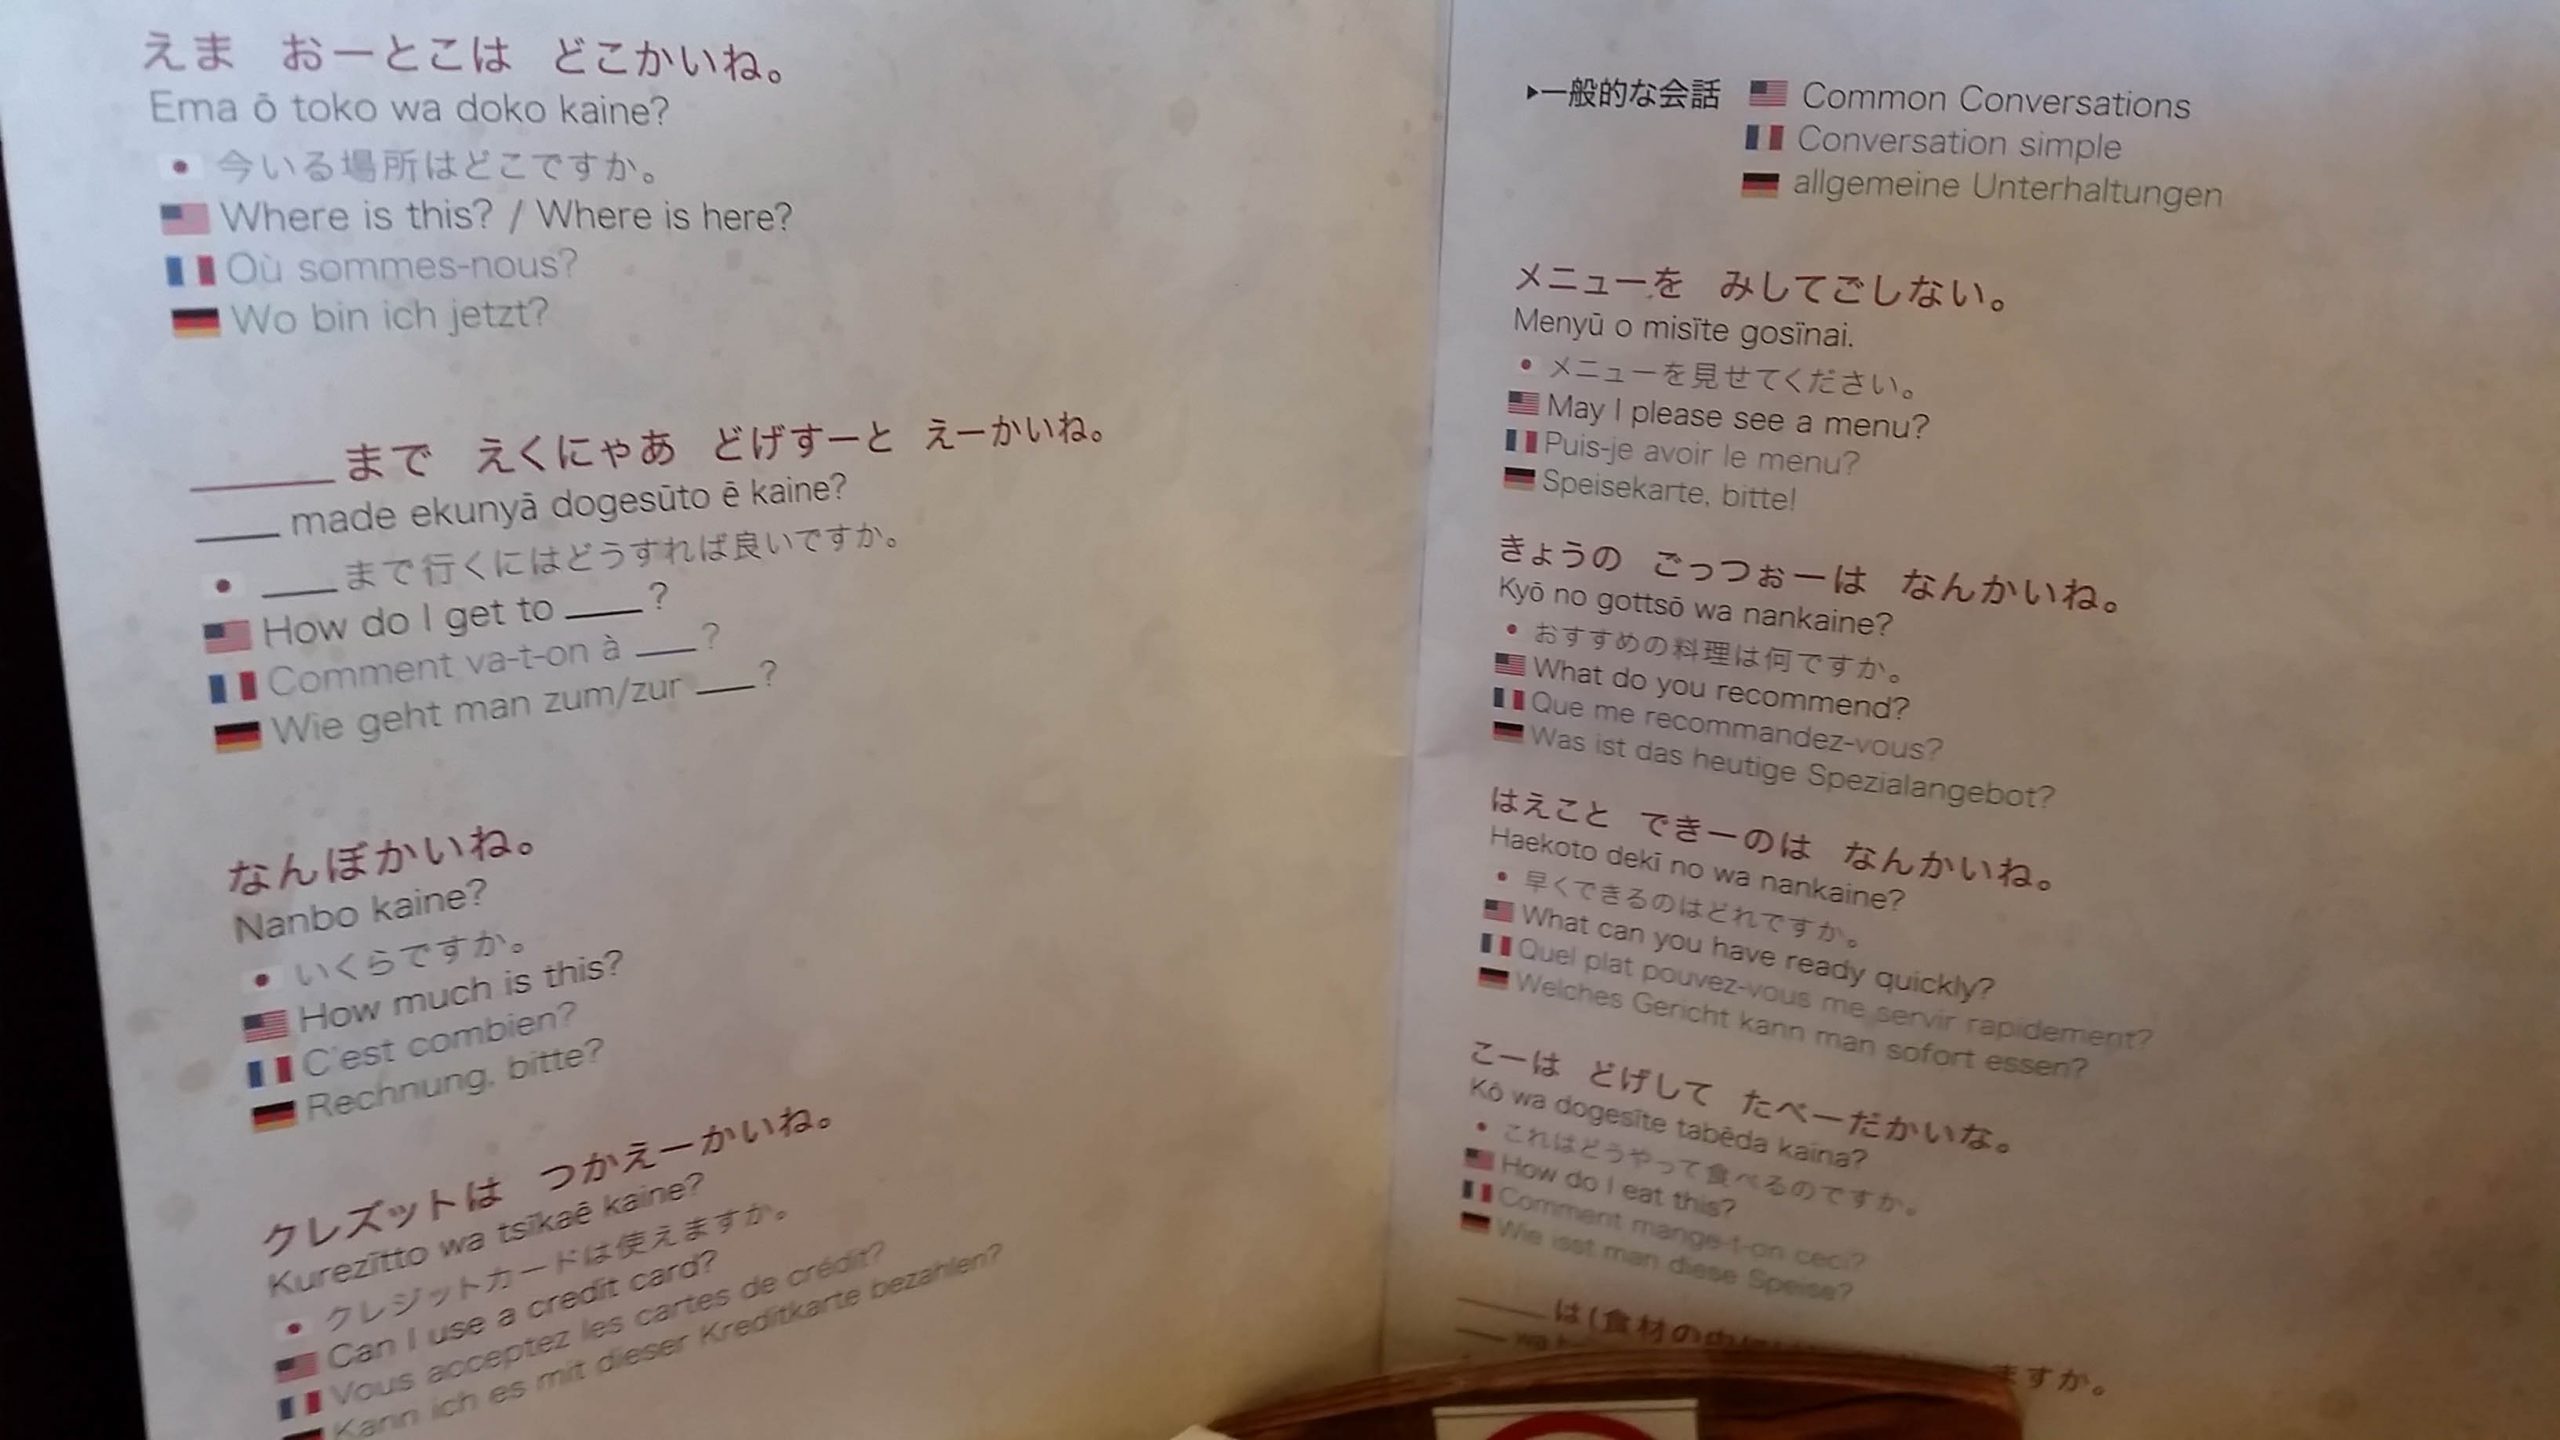 えま　おーとこは　どこかいね。
Ema ō toko wa doko kaine?
今いる場所はどこですか。
Where is this? / Where is here?
Où sommes-nous?
Wo bin ich jetzt?
____まで　えくにゃあ　どげすーと　えーかいね。
____ made ekunyā dogesūto ē kaine?
____まで行くにはどうすれば良いですか。
How do I get to ____?
Comment va-t-on à ____?
Wie geht man zum/zur ____?
なんぼかいね。
Nanbo kaine?
いくらですか。
How much is this?
C'est combien?
Rechnung, bitte?
クレズットは　つかえーかいね。
Kurezïtto wa tsïkaē kaine?
クレジットカードは使えますか。
Can I use a credit card?
Vous acceptez les cartes de crédit?
Kann ich es mit dieser Kreditkarte bezahlen?
▸一般的な会話 Common Conversations
Conversation simple
allgemeine Unterhaltungen
メニューを　みしてごしない。
Menyū o misïte gosïnai.
メニューを見せてください。
May I please see a menu?
Puis-je avoir le menu?
Speisekarte, bitte!
きょうの　ごっつぉーは　なんかいね。
Kyō no gottsō wa nankaine?
おすすめの料理は何ですか。
What do you recommend?
Que me recommandez-vous?
Was ist das heutige Spezialangebot?
はえこと　できーのは　なんかいね。
Haekoto dekī no wa nankaine?
早くできるのはどれですか。
What can you have ready quickly?
Quel plat pouvez-vous me servir rapidement?
Welches Gericht kann man sofort essen?
こーは　どげして　たべーだかいな。
Kō wa dogesïte tabēda kaina?
これはどうやって食べるのですか。
How do I eat this?
Comment mange-t-on ceci?
Wie isst man diese Speise?
____は(食材の中に
____ wa
ますか。